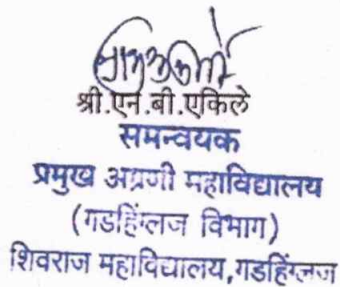 श्री.एन.बी.एकिले
समन्वयक
प्रमुख अग्रणी महाविद्यालय
(गडहिंग्लज विभाग)
शिवराज महाविद्यालय,गडहिंग्लज